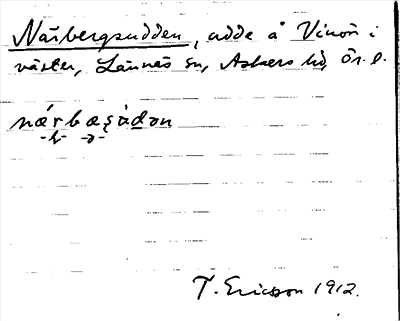 Närbergsudden, udde å Vinön i
väster, Lännäs sn, Askers hd, Ör. l.
nǽrbæşùdən
T. Ericson 1912.